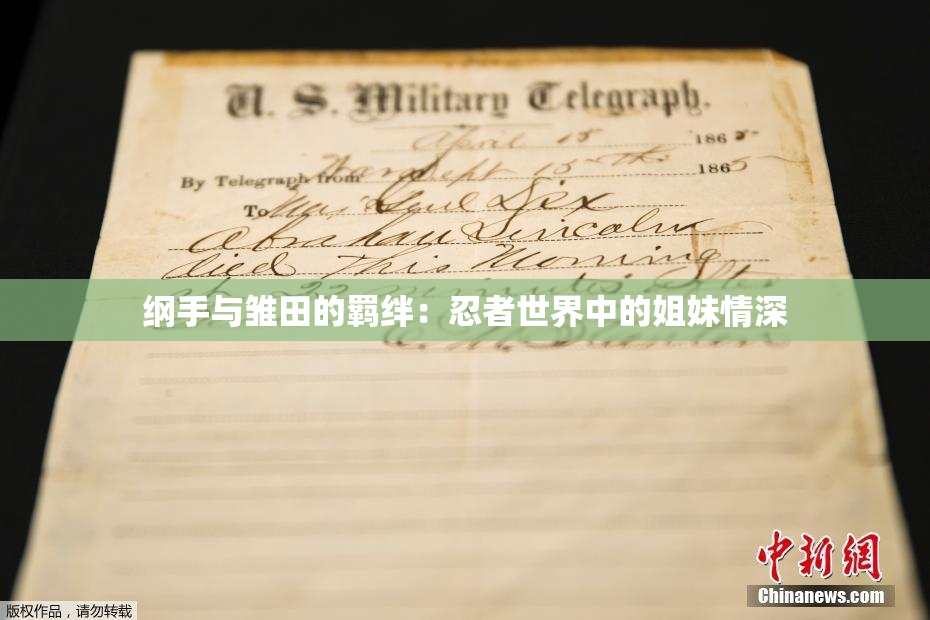 U. S. Military Telegraph.
April 15 1865
By Telegraph from War Dept 15th 1865
To Maj Genl Dix
Abraham Lincoln
died This Morning
at 22 minutes after
纲手与雏田的羁绊：忍者世界中的姐妹情深
E. M. Stanton
中新网
Chinanews.com
版权作品，请勿转载